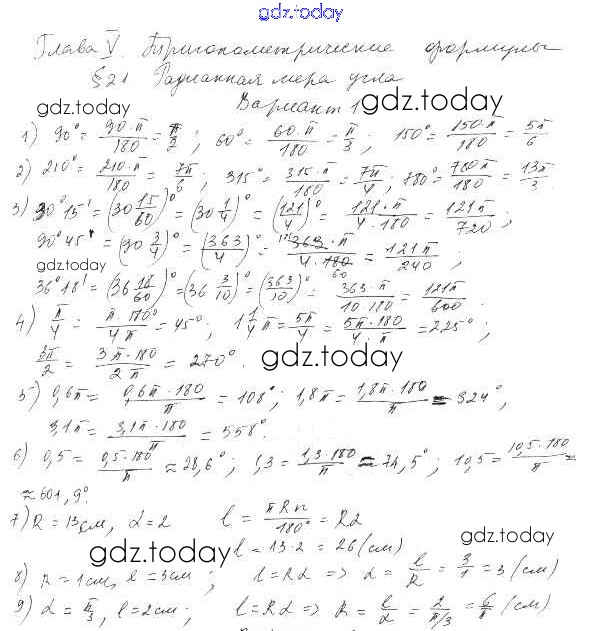 gdz.today
Глава V. Тригонометрические формулы
§21 Радианная мера угла
gdz.today
Вариант 1
gdz.today
1) 90° = 90·π/180 = π/2 ; 60° = 60·π/180 = π/3 ; 150° = 150·π/180 = 5π/6
2) 210° = 210·π/180 = 7π/6 ; 315° = 315·π/180 = 7π/4 ; 780° = 780π/180 = 13π/3
3) 30°15' = (30 15/60)° = (30 1/4)° = (121/4)° = 121·π/4·180 = 121π/720 ;
90°45' = (90 3/4)° = (363/4)° = 363·π/4·180 = 121π/240 ;
gdz.today
36°18' = (36 18/60)° = (36 3/10)° = (363/10)° = 363·π/10·180 = 121π/600 .
4) π/4 = π·180°/4π = 45° ; 1 1/4 π = 5π/4 = 5π·180/4·π = 225° ;
3π/2 = 3π·180/2π = 270° .
gdz.today
5) 0,6π = 0,6π·180/π = 108° ; 1,8π = 1,8π·180/π = 324° ,
3,1π = 3,1π·180/π = 558° .
6) 0,5 = 0,5·180/π ≈ 28,6° ; 1,3 = 1,3·180/π ≈ 74,5° ; 10,5 = 10,5·180/π =
≈ 601,9° .
7) R = 13см, α = 2 l = πRn/180° = Rα
gdz.today
l = 13·2 = 26 (см)
gdz.today
8) R = 1см, l = 3см ; l = Rα => α = l/R = 3/1 = 3 (см)
9) α = π/3 , l = 2см ; l = Rα => R = l/α = 2/π/3 = 6/π (см)